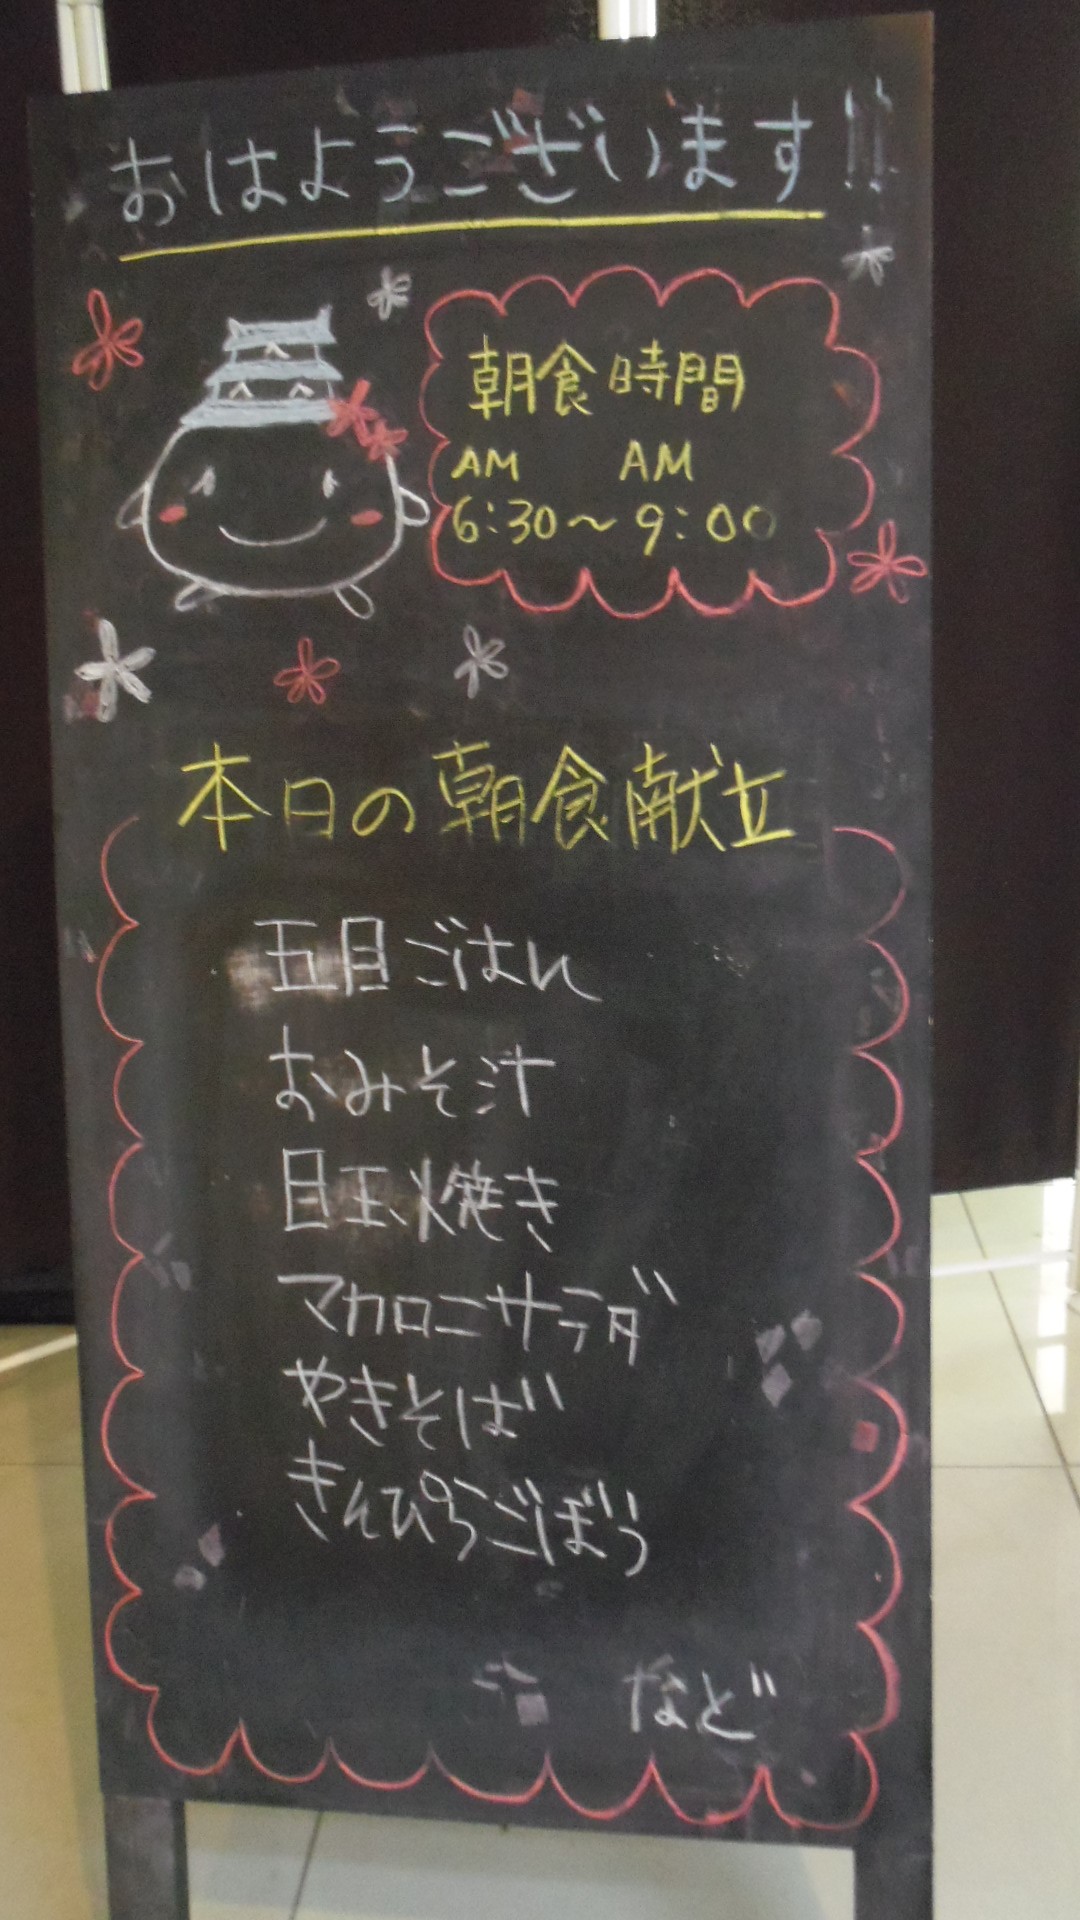 おはようございます!!
朝食時間
AM AM
6:30～9:00
本日の朝食献立
五目ごはん
おみそ汁
目玉焼き
マカロニサラダ
やきそば
きんぴらごぼう
など